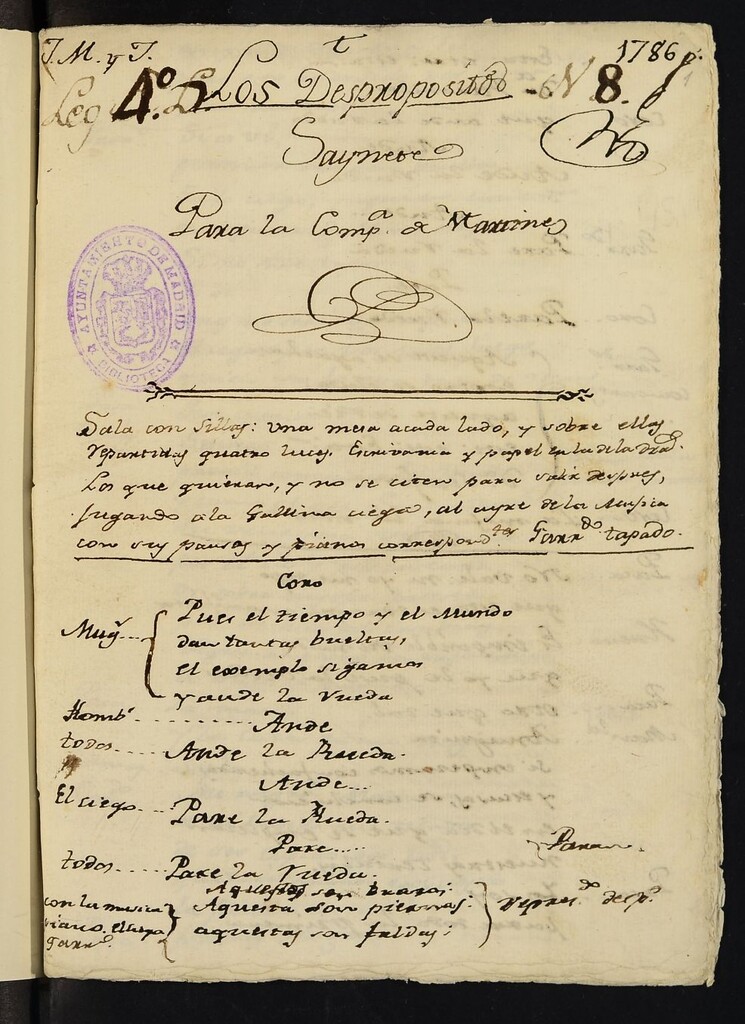 J. M. y J.
t
1786
Leg 4.º Los Despropositos - N 8.
Saynete
Para la Comp.ª de Martinez
AYUNTAMIENTO DE MADRID
BIBLIOTECA
Sala con Sillas: una mesa acada lado, y sobre ellas
repartidas quatro luces. Escrivania y papel en la de la dra.
Los que quieran, y no se citen para salir despues,
jugando ala Gallina ciega, al ayre de la Musica
con sus pausas y pianos correspond.tes Garr.do tapado.
Coro
Mug.s Pues el tiempo y el Mundo
dan tantas bueltas,
el exemplo sigamos
y ande la rueda
Homb.s Ande
todos Ande la Rueda.
Ande...
El ciego Pare la Rueda.
Pare..... Paran
todos Pare la rueda.
Aquestos son brazos:
con la musica Aquesta son piernas: repres.do desp.s
piano. el ciego aquestas son faldas;
Garr.o